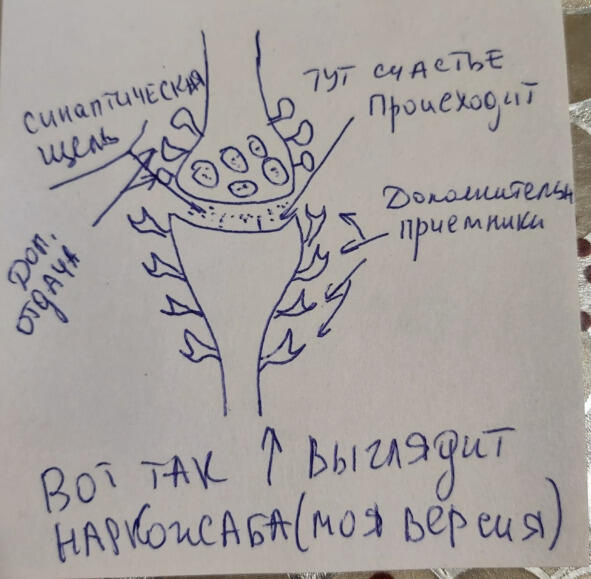 синаптическая
щель
тут счастье
происходит
Дополнительн
приемники
Доп.
отдача
Вот так ↑ выглядит
наркожаба (моя версия)